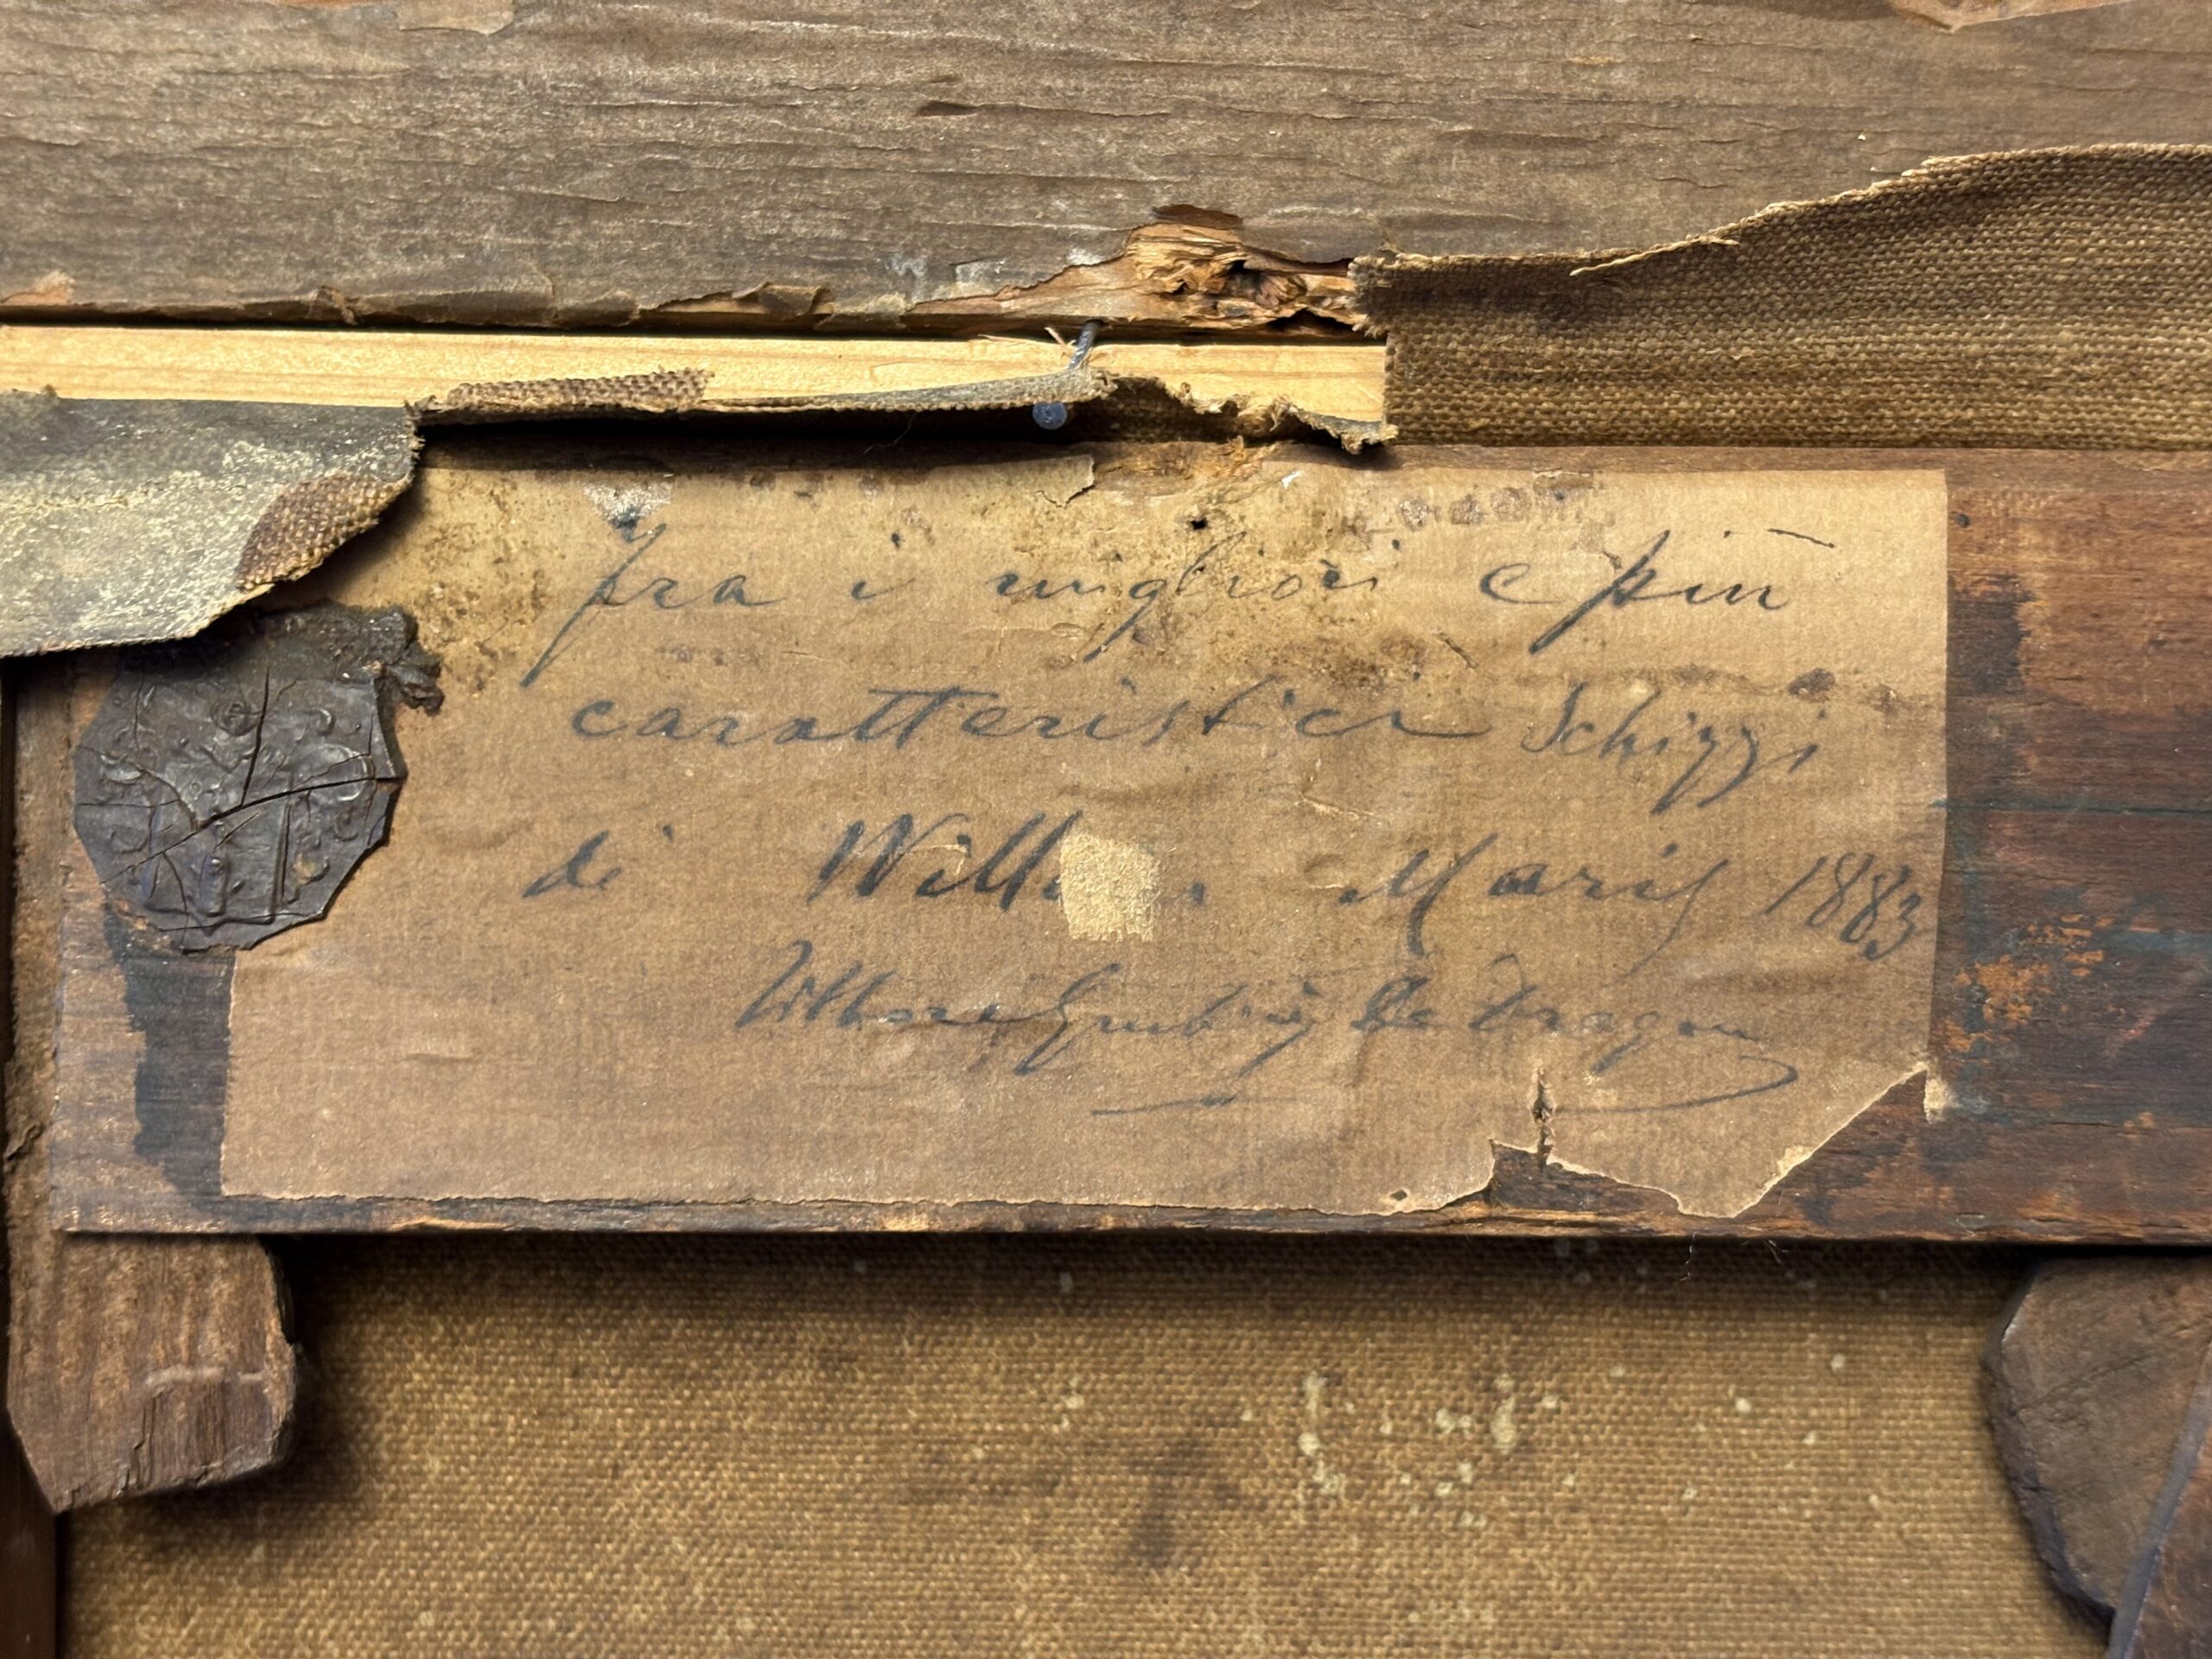 fra i migliori e più
caratteristici Schizzi
di Maris 1883
Vittore Grubicy de Dragon